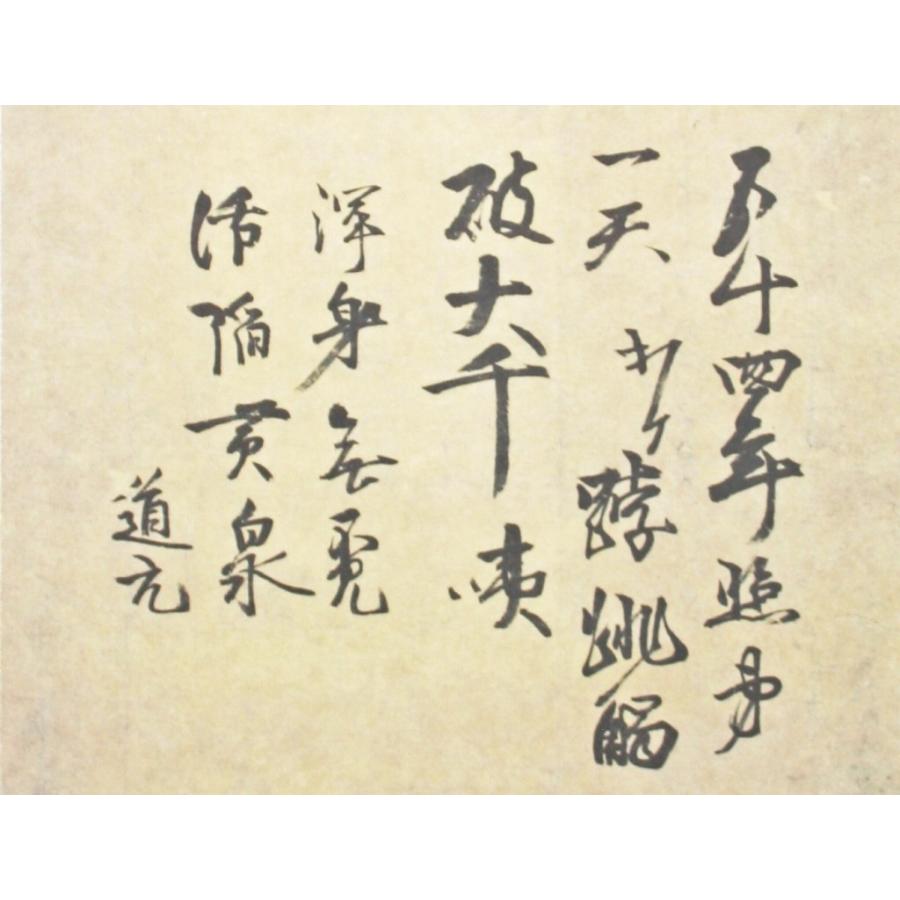 五十四年照第
一天 打个𨁝跳觸
破大千 咦
渾身無覓
活陥黄泉
道元